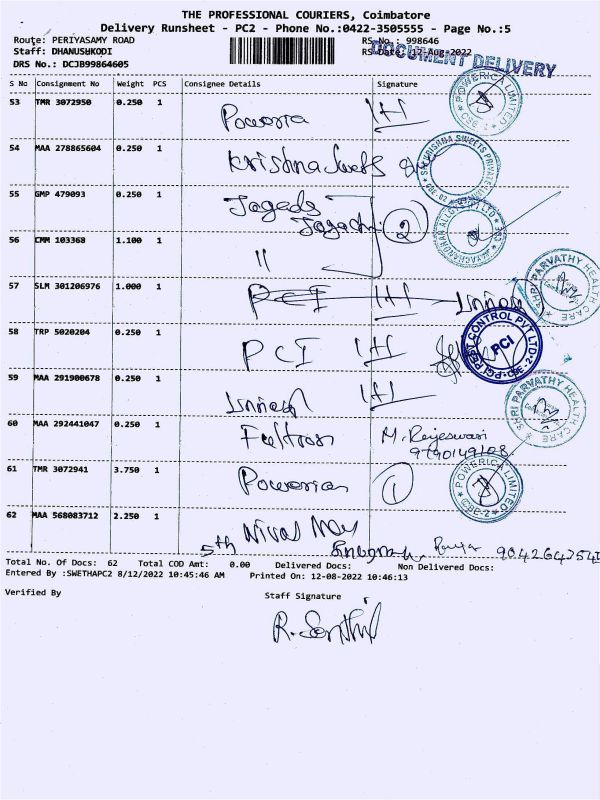 THE PROFESSIONAL COURIERS, Coimbatore
Delivery Runsheet - PC2 - Phone No.:0422-3505555 - Page No.:5
Route: PERIYASAMY ROAD
RS No.: 998646
Staff: DHANUSHKODI
RS Date: 12-Aug-2022
DOCUMENT DELIVERY
DRS No.: DCJB99864605
S No Consignment No Weight PCS Consignee Details Signature
53 TMR 3072950 0.250 1
POWERICA LIMITED CBE-2
54 MAA 278865604 0.250 1 Krishna Sweets
SRI KRISHNA SWEETS PRIVATE LIMITED
55 GMP 479093 0.250 1
2
56 CMM 103368 1.100 1 "
57 SLM 301206976 1.000 1 PCI
SHRI PARVATHY HEALTH CARE
58 TRP 5020204 0.250 1 PCI
PCI PEST CONTROL PVT LTD CBE-2
59 MAA 291900678 0.250 1
SHRI PARVATHY HEALTH CARE
60 MAA 292441047 0.250 1 M. Rajeswari
9790149108
61 TMR 3072941 3.750 1 1
POWERICA LIMITED CBE-2
62 MAA 568083712 2.250 1
5th
Total No. Of Docs: 62 Total COD Amt: 0.00 Delivered Docs: Non Delivered Docs:
Entered By :SWETHAPC2 8/12/2022 10:45:46 AM Printed On: 12-08-2022 10:46:13
Verified By Staff Signature